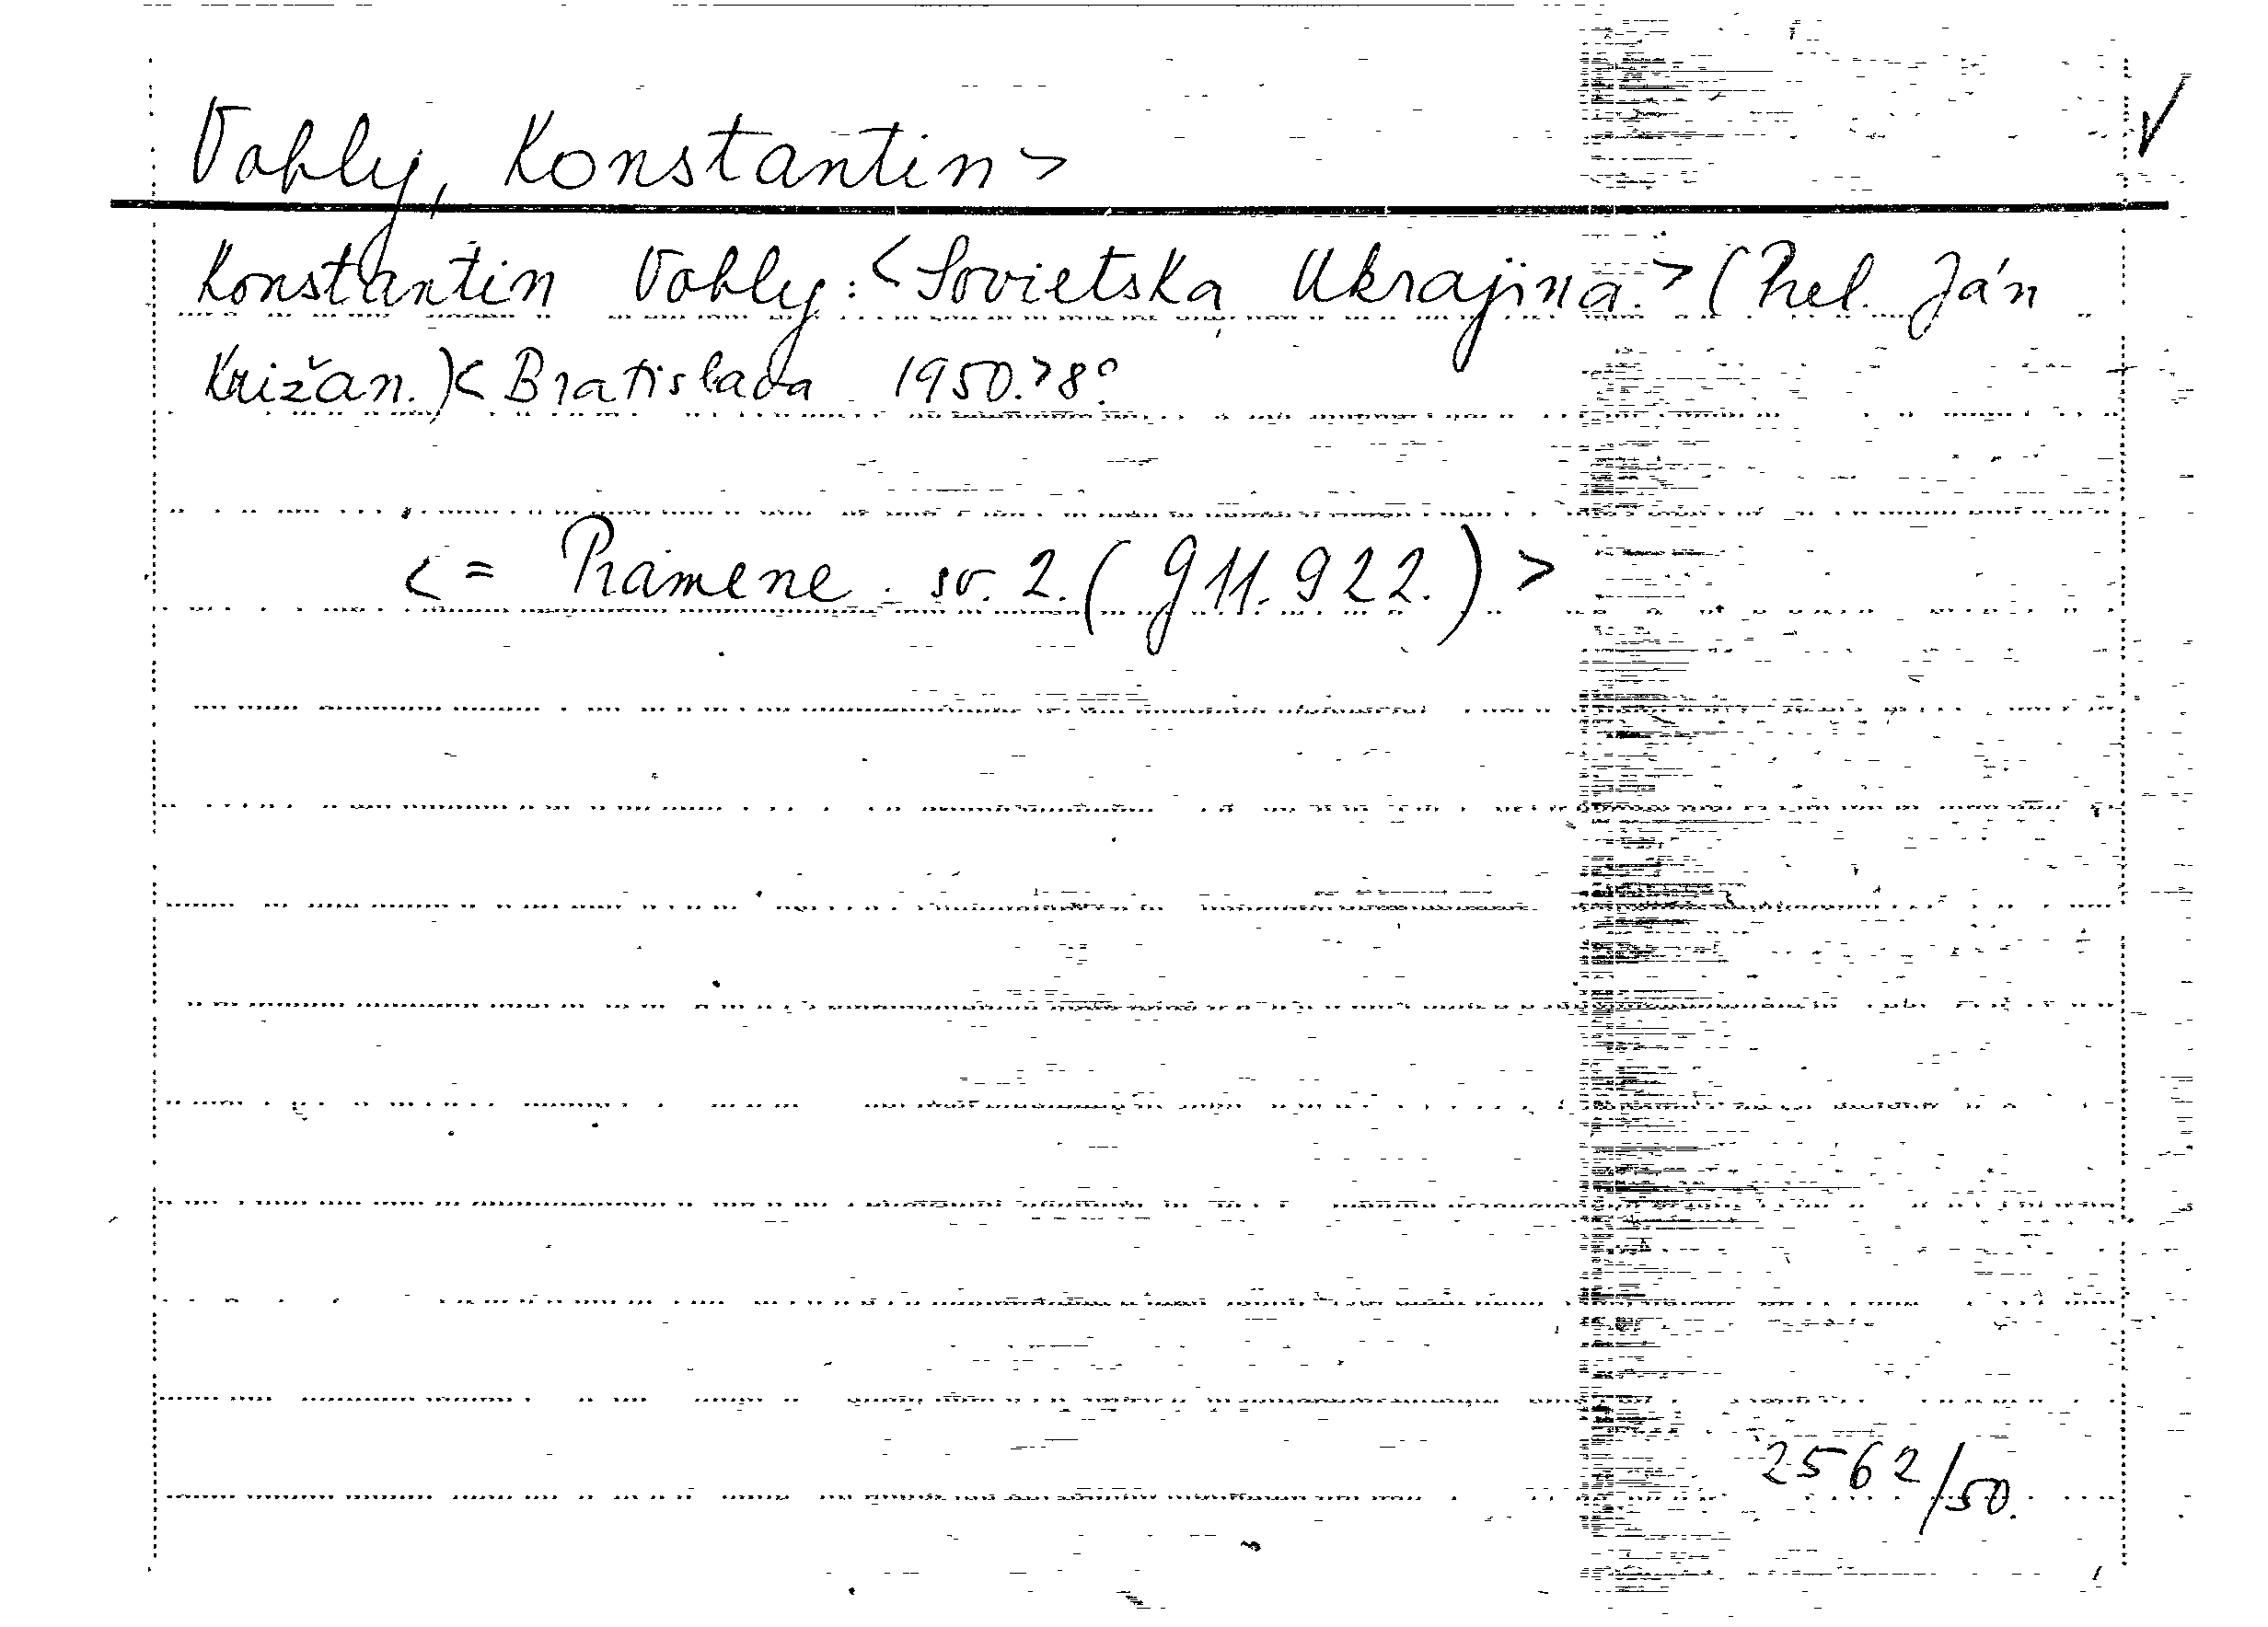 Vobly, Konstantin>
Konstantin Vobly: <Sovietska Ukrajina.> (Prel. Ján
Križan.)< Bratislava 1950.>8°
<= Pramene. sv. 2. (G 11.922.) >
2562/50.